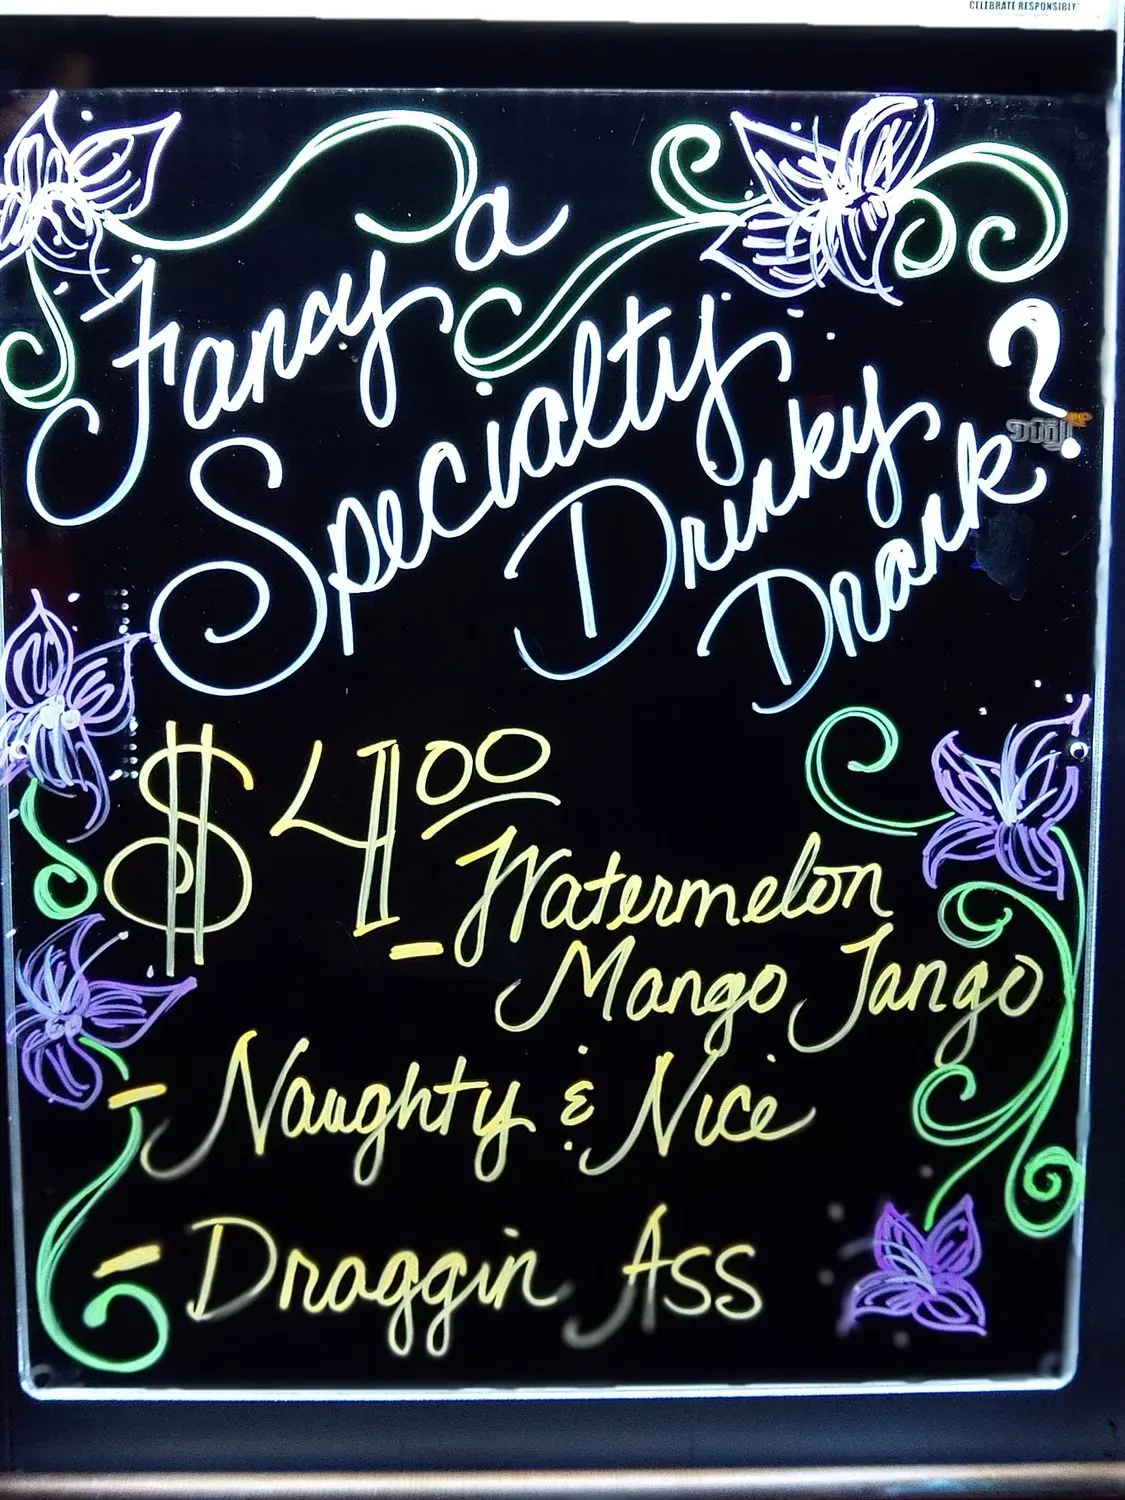 CELEBRATE RESPONSIBLY
Fancy a
Specialty
Drinky
Drank?
$4.00
- Watermelon
Mango Tango
- Naughty & Nice
- Draggin Ass